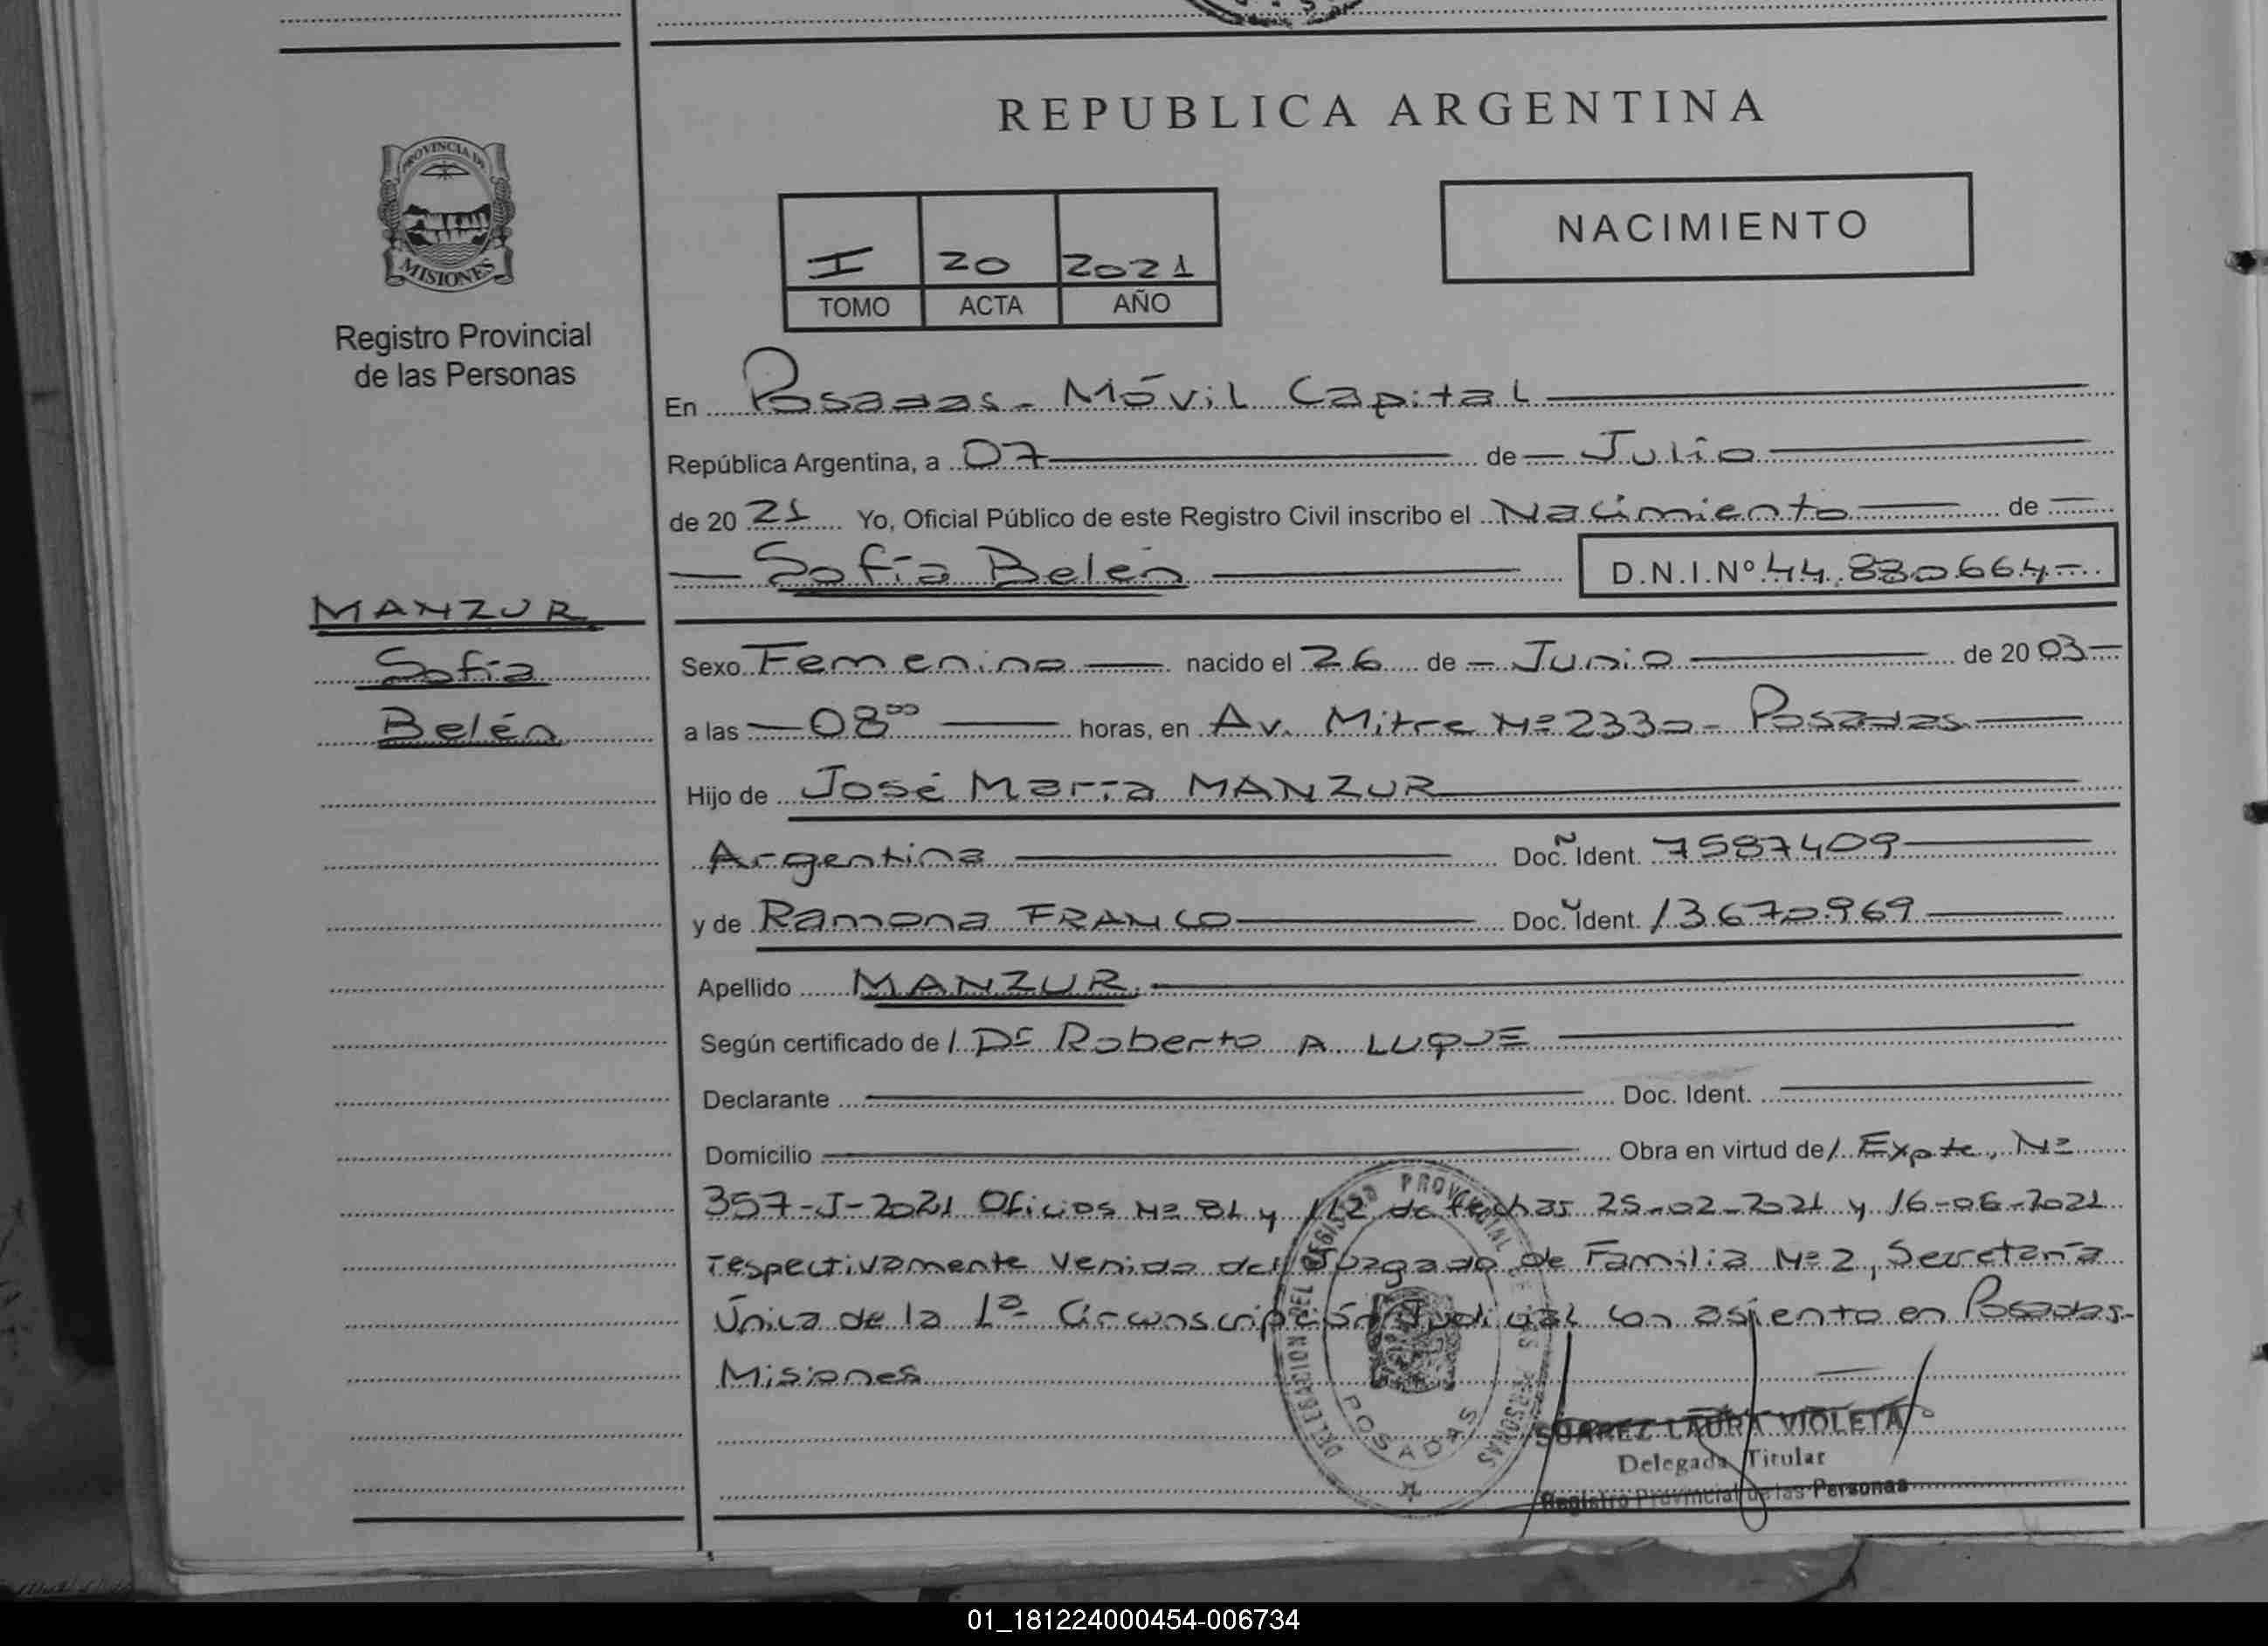 REPUBLICA ARGENTINA
PROVINCIA DE
MISIONES
Registro Provincial
de las Personas
I 20 2021
TOMO ACTA AÑO
NACIMIENTO
En Posadas - Móvil Capital
República Argentina, a 07 de Julio
de 20 21 Yo, Oficial Público de este Registro Civil inscribo el Nacimiento de
Sofía Belén D.N.I.Nº 44.830.664-
MANZUR
Sofía
Belén
Sexo Femenino nacido el 26 de Junio de 20 03
a las 08⁰⁰ horas, en Av. Mitre Nº 2330 - Posadas
Hijo de José María MANZUR
Argentina Doc. Ident. 7587409
y de Ramona FRANCO Doc. Ident. 13670969
Apellido MANZUR
Según certificado de / Dr Roberto A LUQUE
Declarante Doc. Ident.
Domicilio Obra en virtud de / Expte. Nº
357-J-2021 Oficios Nº 81 y 112 de fechas 25-02-2021 y 16-06-2021
respectivamente venido del Juzgado de Familia Nº 2, Secretaría
Única de la 1ª Circunscripción Judicial con asiento en Posadas-
Misiones
DELEGACION DEL REGISTRO PROVINCIAL DE LAS PERSONAS
POSADAS
SUAREZ LAURA VIOLETA
Delegada Titular
Registro Provincial de las Personas
01_181224000454-006734